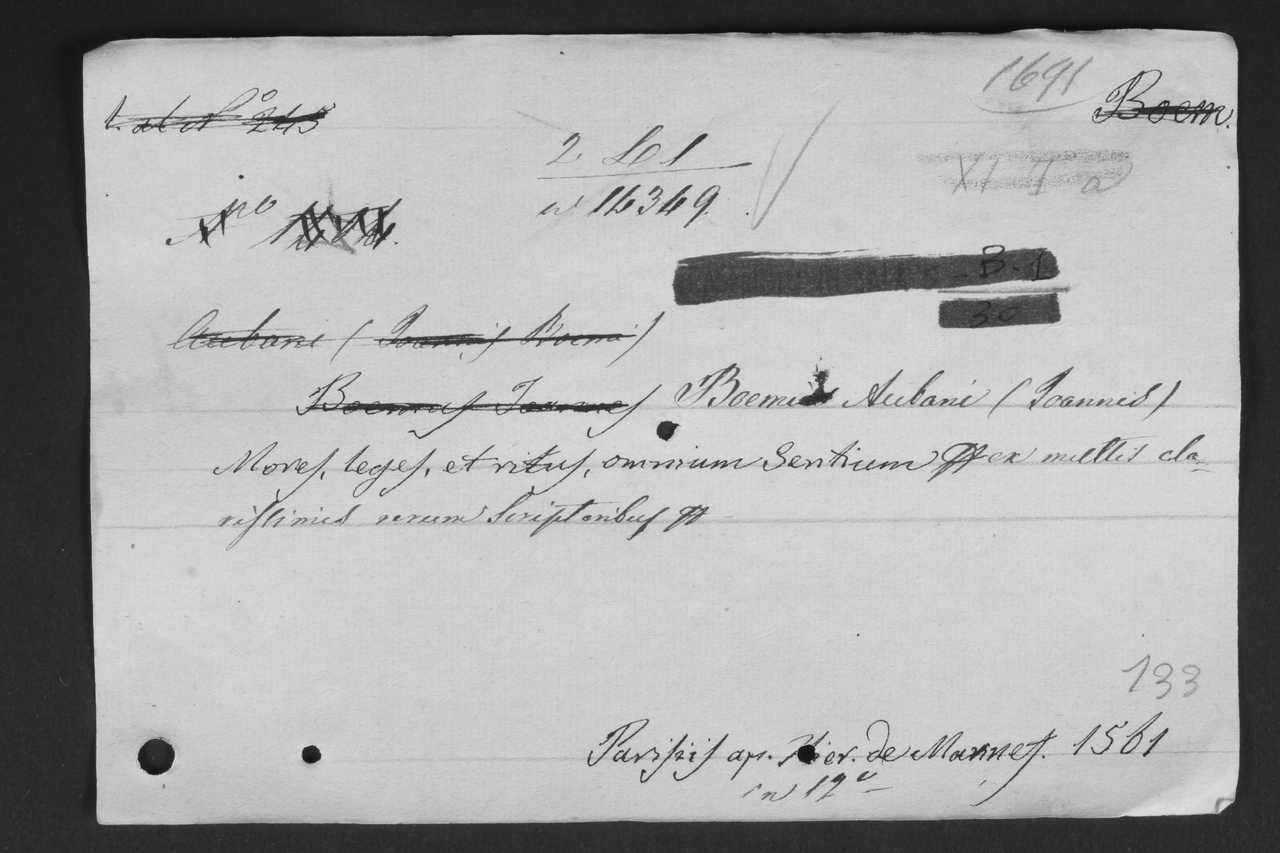 1691
Boem.
243
XI I a
n 16349.
B. 1
30
Aubani (Joannis Boemi)
Boemus Joannes Boemi Aubani (Joannis)
Mores, leges, et ritus, omnium Gentium ex multis cla-
rissimis rerum Scriptoribus
133
Parisiis ap. Hier. de Marnef. 1561
in 12º